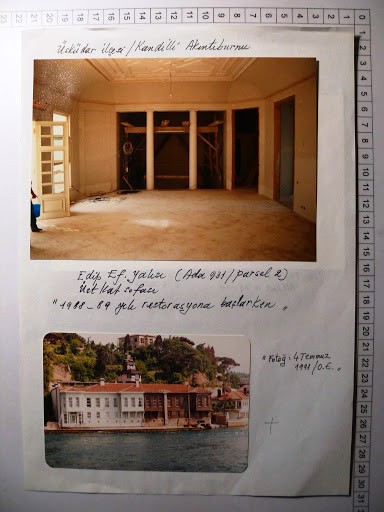 Üsküdar ilçesi / Kandilli Akıntıburnu
Edip Ef. Yalısı (Ada 931 / parsel 2)
Üst kat sofası
"1988_89 yılı restorasyona başlarken"
"Fotoğ: 4 Temmuz
1991/O.E."
0 1 2 3 4 5 6 7 8 9 10 11 12 13 14 15 16 17 18 19 20
1 2 3 4 5 6 7 8 9 10 11 12 13 14 15 16 17 18 19 20 21 22 23 24 25 26 27 28 29 30 31